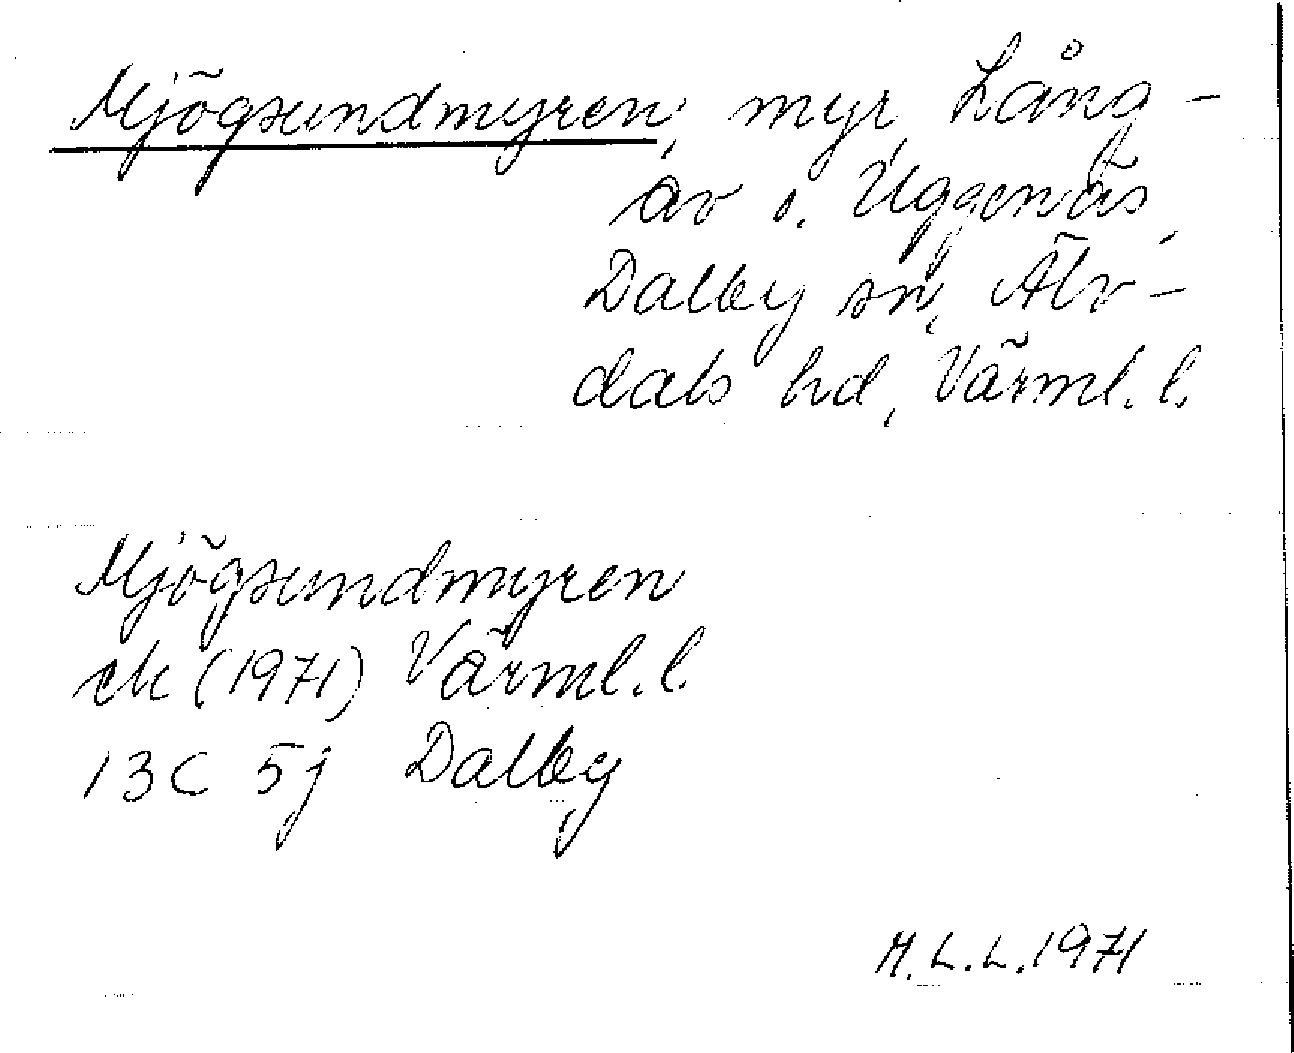 Mjögsundmyren, myr, Lång-
av o. Uggenäs,
Dalby sn, Älv-
dals hd, Värml. l.
Mjögsundmyren
ek (1971) Värml. l.
13C 5j Dalby
M.L.L. 1971